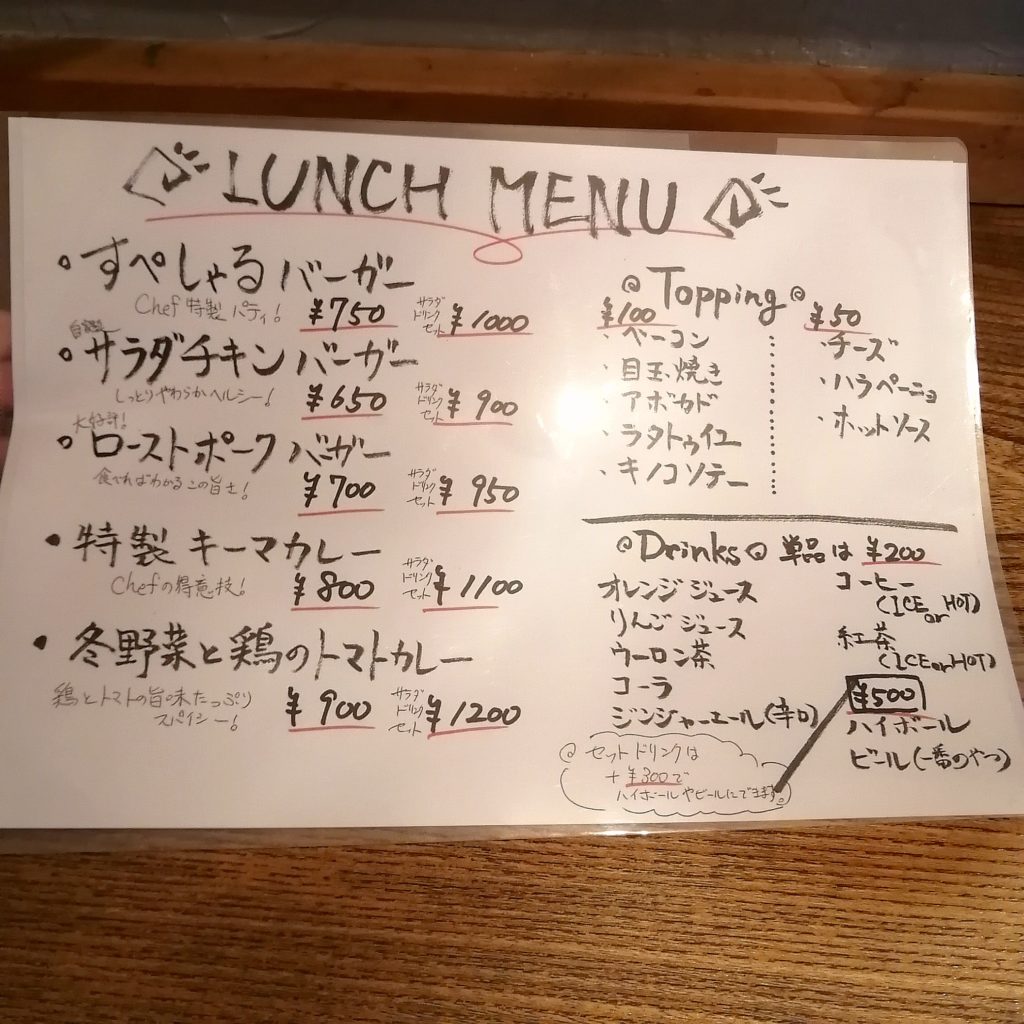 LUNCH MENU
・すぺしゃるバーガー
Chef特製パティ! ¥750 サラダドリンクセット ¥1000
自家製
・サラダチキンバーガー
しっとりやわらかヘルシー! ¥650 サラダドリンクセット ¥900
大好評!
・ローストポークバーガー
食べればわかるこの旨さ! ¥700 サラダドリンクセット ¥950
・特製キーマカレー
Chefの得意技! ¥800 サラダドリンクセット ¥1100
・冬野菜と鶏のトマトカレー
鶏とトマトの旨味たっぷり
スパイシー! ¥900 サラダドリンクセット ¥1200
@ Topping @
¥100
・ベーコン
・目玉焼き
・アボカド
・ラタトゥイユ
・キノコソテー
¥50
・チーズ
・ハラペーニョ
・ホットソース
@ Drinks @ 単品は ¥200
オレンジジュース
りんごジュース
ウーロン茶
コーラ
ジンジャーエール(辛口)
コーヒー
(ICE or HOT)
紅茶
(ICE or HOT)
¥500
ハイボール
ビール(一番のやつ)
@ セットドリンクは
+¥300で
ハイボールやビールにできます。